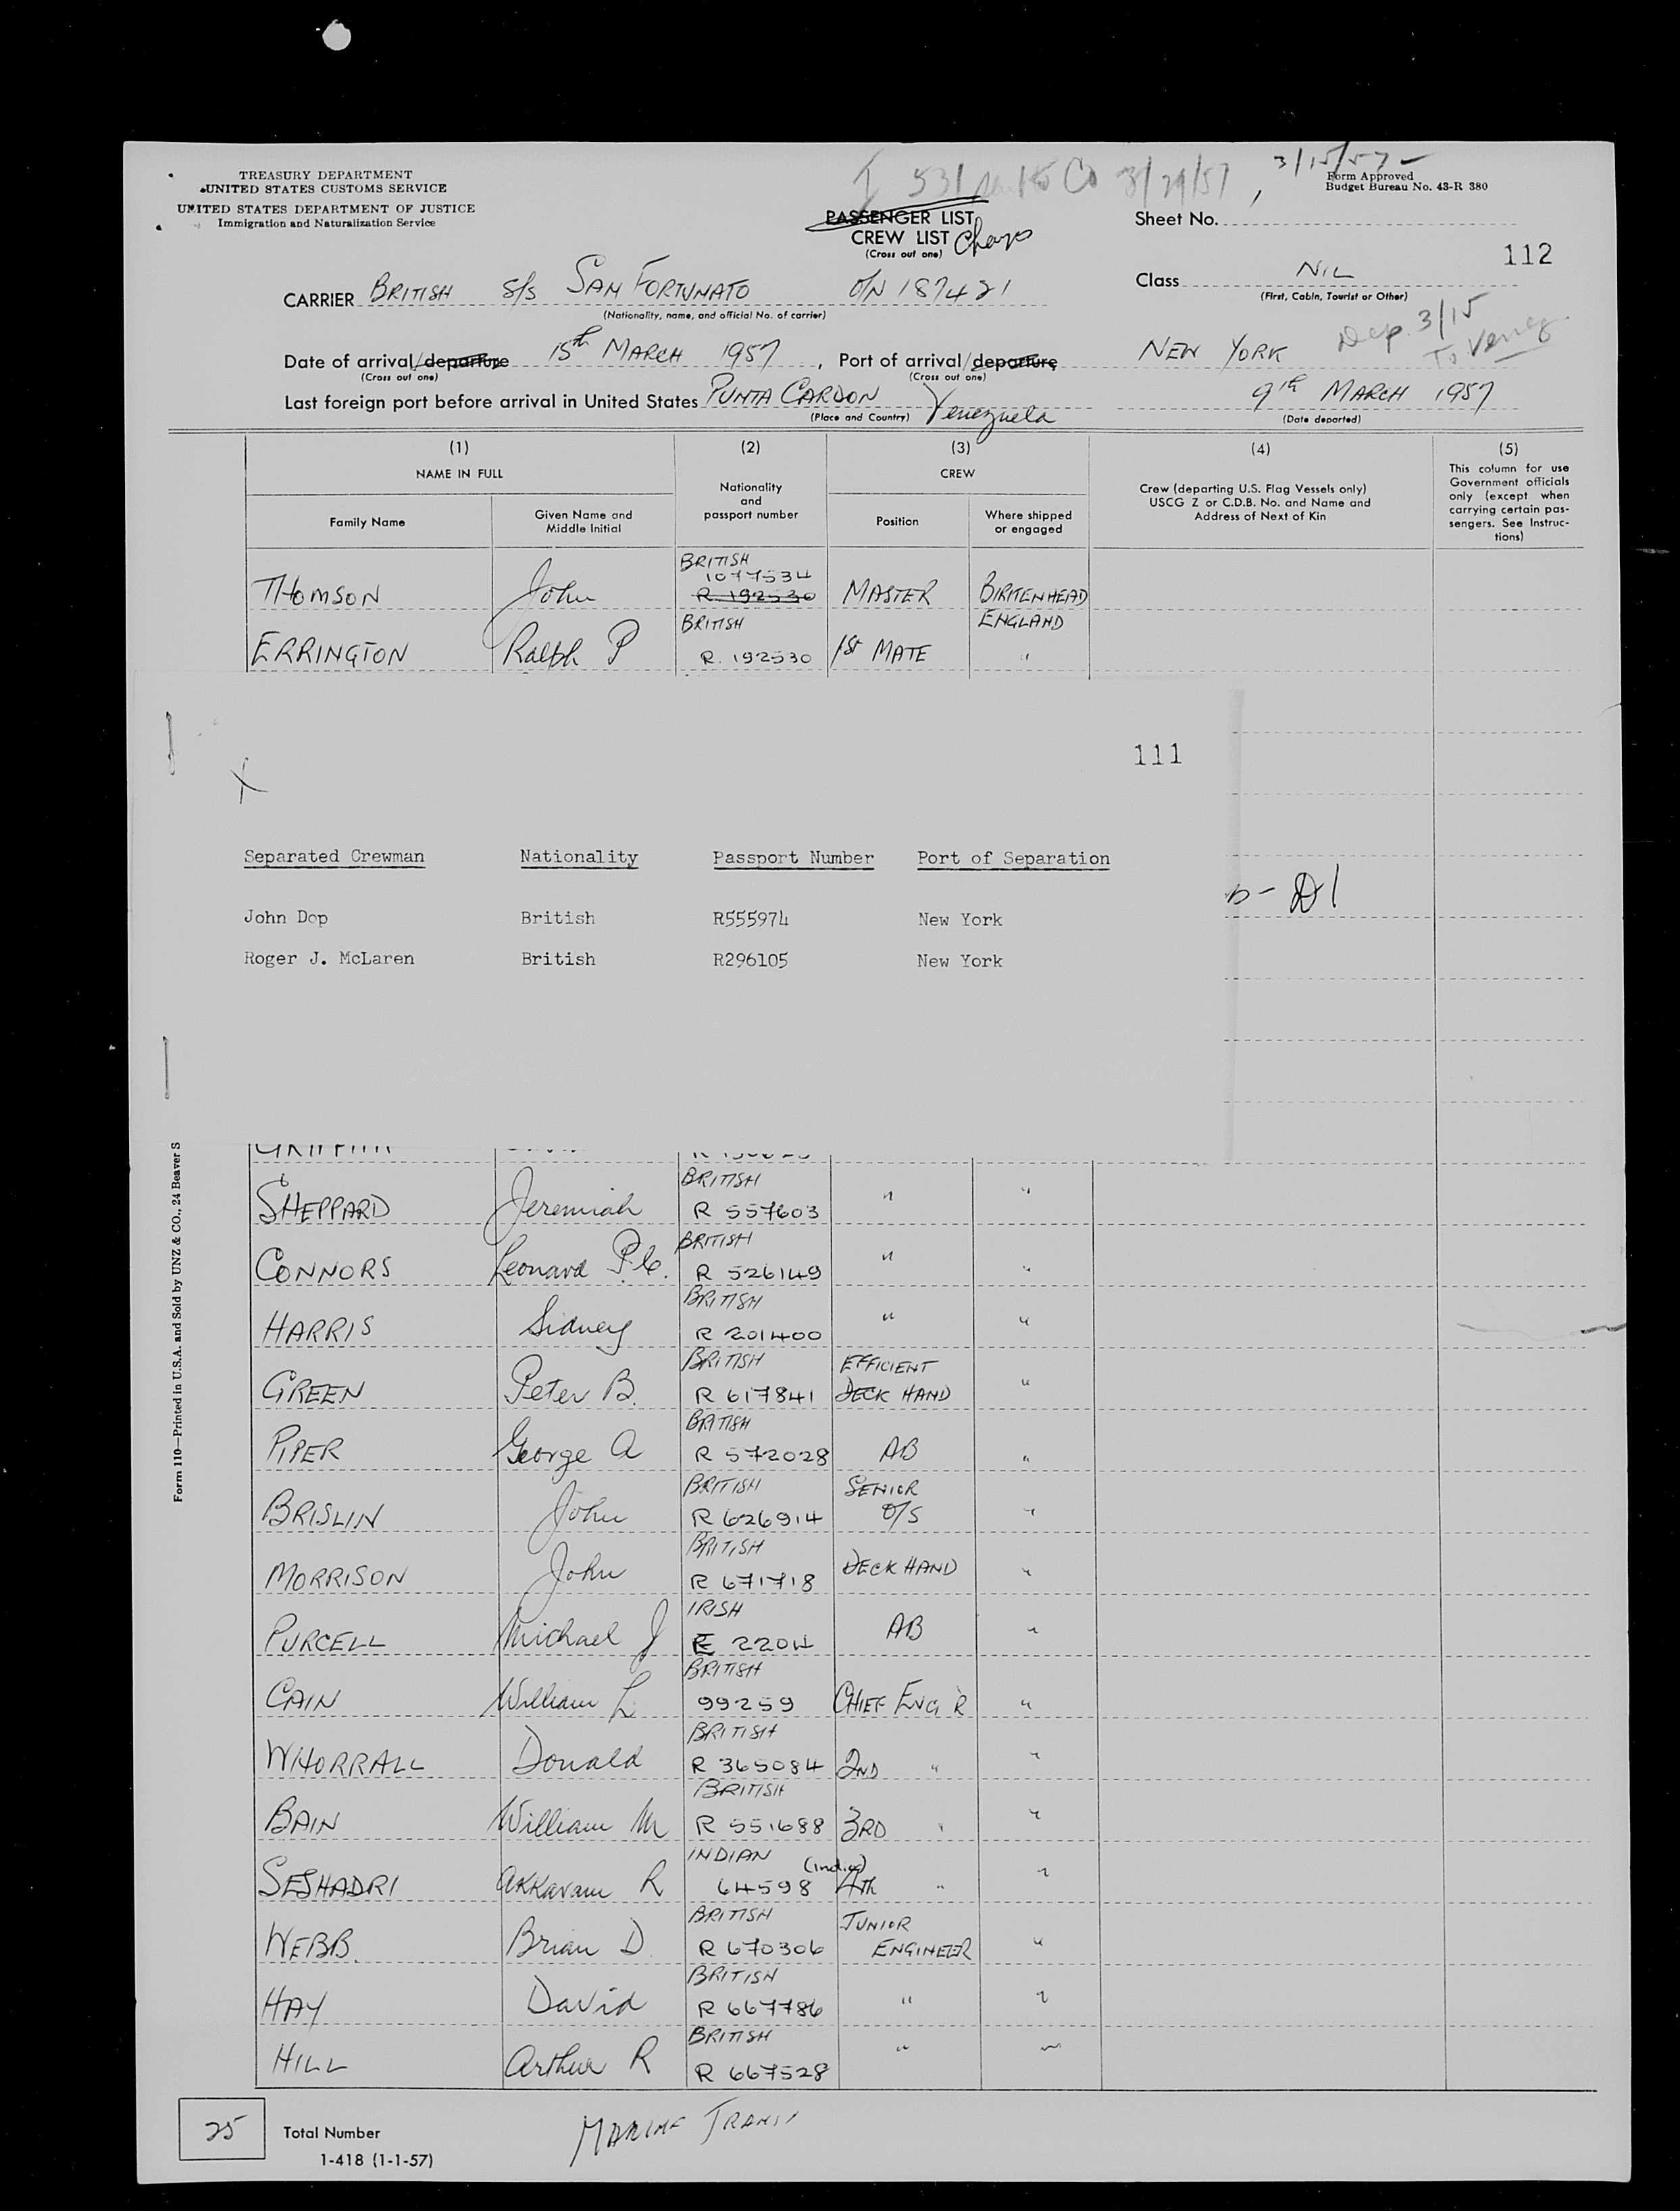 TREASURY DEPARTMENT
UNITED STATES CUSTOMS SERVICE
UNITED STATES DEPARTMENT OF JUSTICE
Immigration and Naturalization Service
3/29/57, 3/15/57
Form Approved
Budget Bureau No. 43-R 380
PASSENGER LIST
CREW LIST
(Cross out one)
Sheet No.
112
CARRIER BRITISH S/S SAN FORTUNATO O/N 187421
(Nationality, name, and official No. of carrier)
Class NIL
(First, Cabin, Tourist or Other)
Dep. 3/15
To Venez.
Date of arrival/departure 15th MARCH 1957, Port of arrival/departure NEW YORK
(Cross out one) (Cross out one)
Last foreign port before arrival in United States PUNTA CARDON Venezuela 9th MARCH 1957
(Place and Country) (Date departed)
(1) (2) (3) (4) (5)
NAME IN FULL
Family Name
Given Name and
Middle Initial
Nationality
and
passport number
CREW
Position
Where shipped
or engaged
Crew (departing U.S. Flag Vessels only)
USCG Z or C.D.B. No. and Name and
Address of Next of Kin
This column for use
Government officials
only (except when
carrying certain pas-
sengers. See Instruc-
tions)
BRITISH
1077534
THOMSON John R. 192530 MASTER BIRKENHEAD
BRITISH ENGLAND
ERRINGTON Ralph P R. 192530 1st MATE "
111
X
Separated Crewman Nationality Passport Number Port of Separation
D1
John Dop British R555974 New York
Roger J. McLaren British R296105 New York
GRIFFITH
BRITISH
SHEPPARD Jeremiah R 557603 " "
BRITISH
CONNORS Leonard P.C. R 526149 " "
BRITISH
HARRIS Sidney R 201400 " "
BRITISH EFFICIENT
GREEN Peter B. R 617841 DECK HAND "
BRITISH
PIPER George A R 572028 AB "
BRITISH SENIOR
BRISLIN John R 626914 O/S "
BRITISH
MORRISON John R 671718 DECK HAND "
IRISH
PURCELL Michael J E 2204 AB "
BRITISH
CAIN William L. 99259 CHIEF ENG'R "
BRITISH
WHORRALL Donald R 365084 2ND " "
BRITISH
BAIN William M R 551688 3RD " "
INDIAN (India)
SESHADRI Akkaram R 64598 4th " "
BRITISH JUNIOR
WEBB. Brian D. R 670306 ENGINEER "
BRITISH
HAY David R 667786 " "
BRITISH
HILL Arthur R R 667528 " "
25 Total Number
1-418 (1-1-57)
MARINE TRANSI
Form 110—Printed in U.S.A. and Sold by UNZ & CO., 24 Beaver S